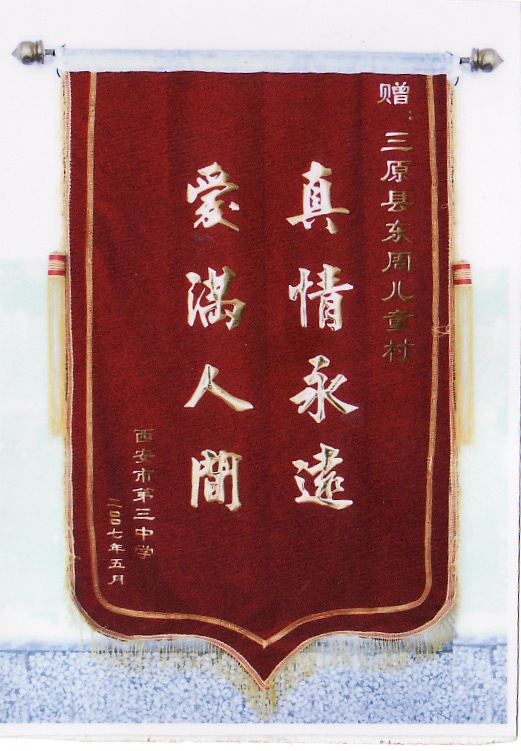 赠：三原县东周儿童村
真情永遠
爱满人間
西安市第三中学
二00七年五月